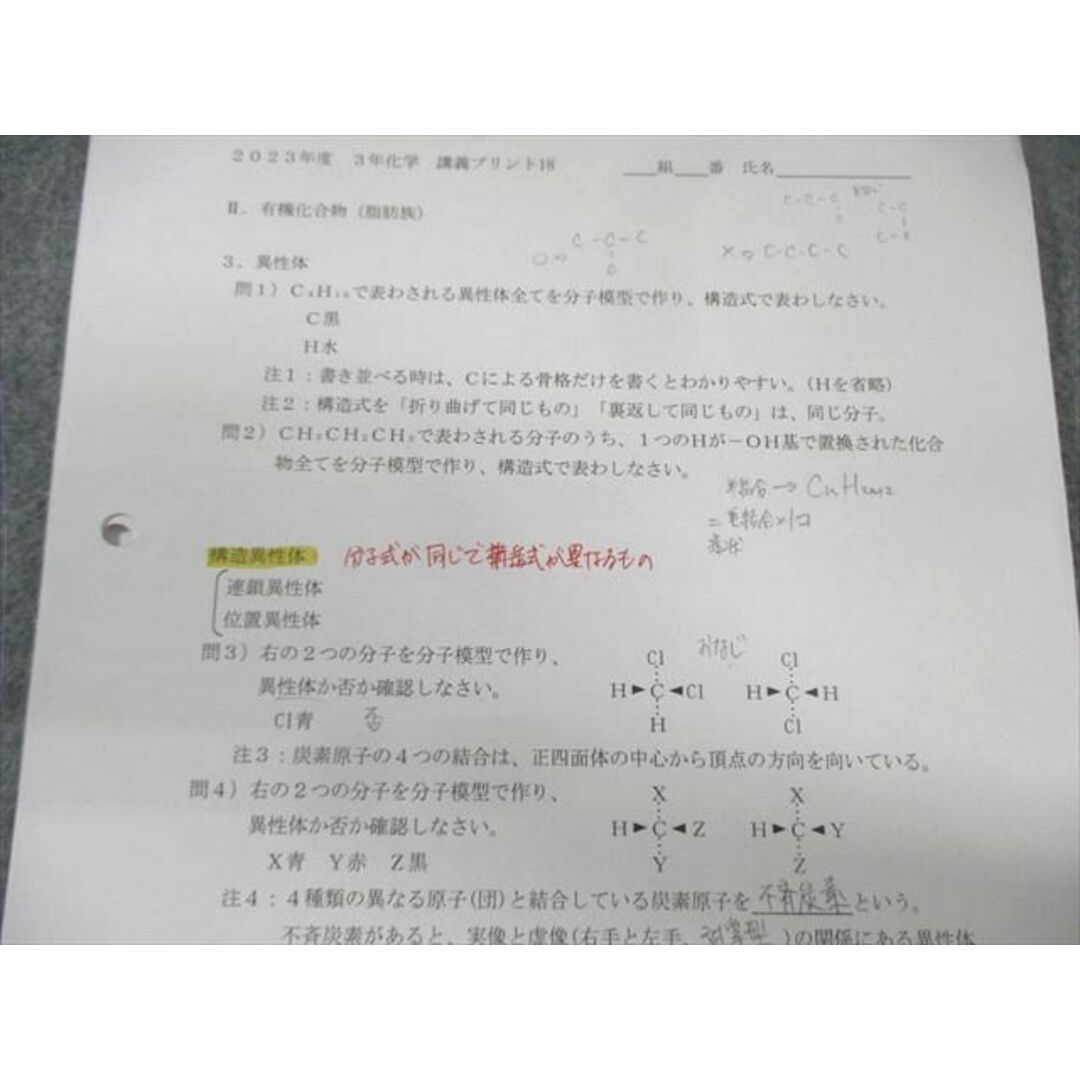 2023年度 3年化学 講義プリント18 ___組___番 氏名
Ⅱ．有機化合物（脂肪族）
C-C-C
C
C-C
C-C
C-C-C
X⇒C-C-C-C
3．異性体
問1）C₄H₁₀で表わされる異性体全てを分子模型で作り、構造式で表わしなさい。
C黒
H水
注1：書き並べる時は、Cによる骨格だけを書くとわかりやすい。（Hを省略）
注2：構造式を「折り曲げて同じもの」「裏返して同じもの」は、同じ分子。
問2）CH₃CH₂CH₃で表わされる分子のうち、1つのHが－OH基で置換された化合
物全てを分子模型で作り、構造式で表わしなさい。
単結合→CnH2n+2
=重結合×1コ
環状
構造異性体 分子式が同じで構造式が異なるもの
連鎖異性体
位置異性体
問3）右の2つの分子を分子模型で作り、
おなじ
Cl Cl
異性体か否か確認しなさい。
H►C◄Cl H►C◄H
Cl青 否
H Cl
注3：炭素原子の4つの結合は、正四面体の中心から頂点の方向を向いている。
問4）右の2つの分子を分子模型で作り、
X X
異性体か否か確認しなさい。
H►C◄Z H►C◄Y
X青 Y赤 Z黒
Y Z
注4：4種類の異なる原子(団)と結合している炭素原子を 不斉炭素 という。
不斉炭素があると、実像と虚像(右手と左手、対掌型 )の関係にある異性体